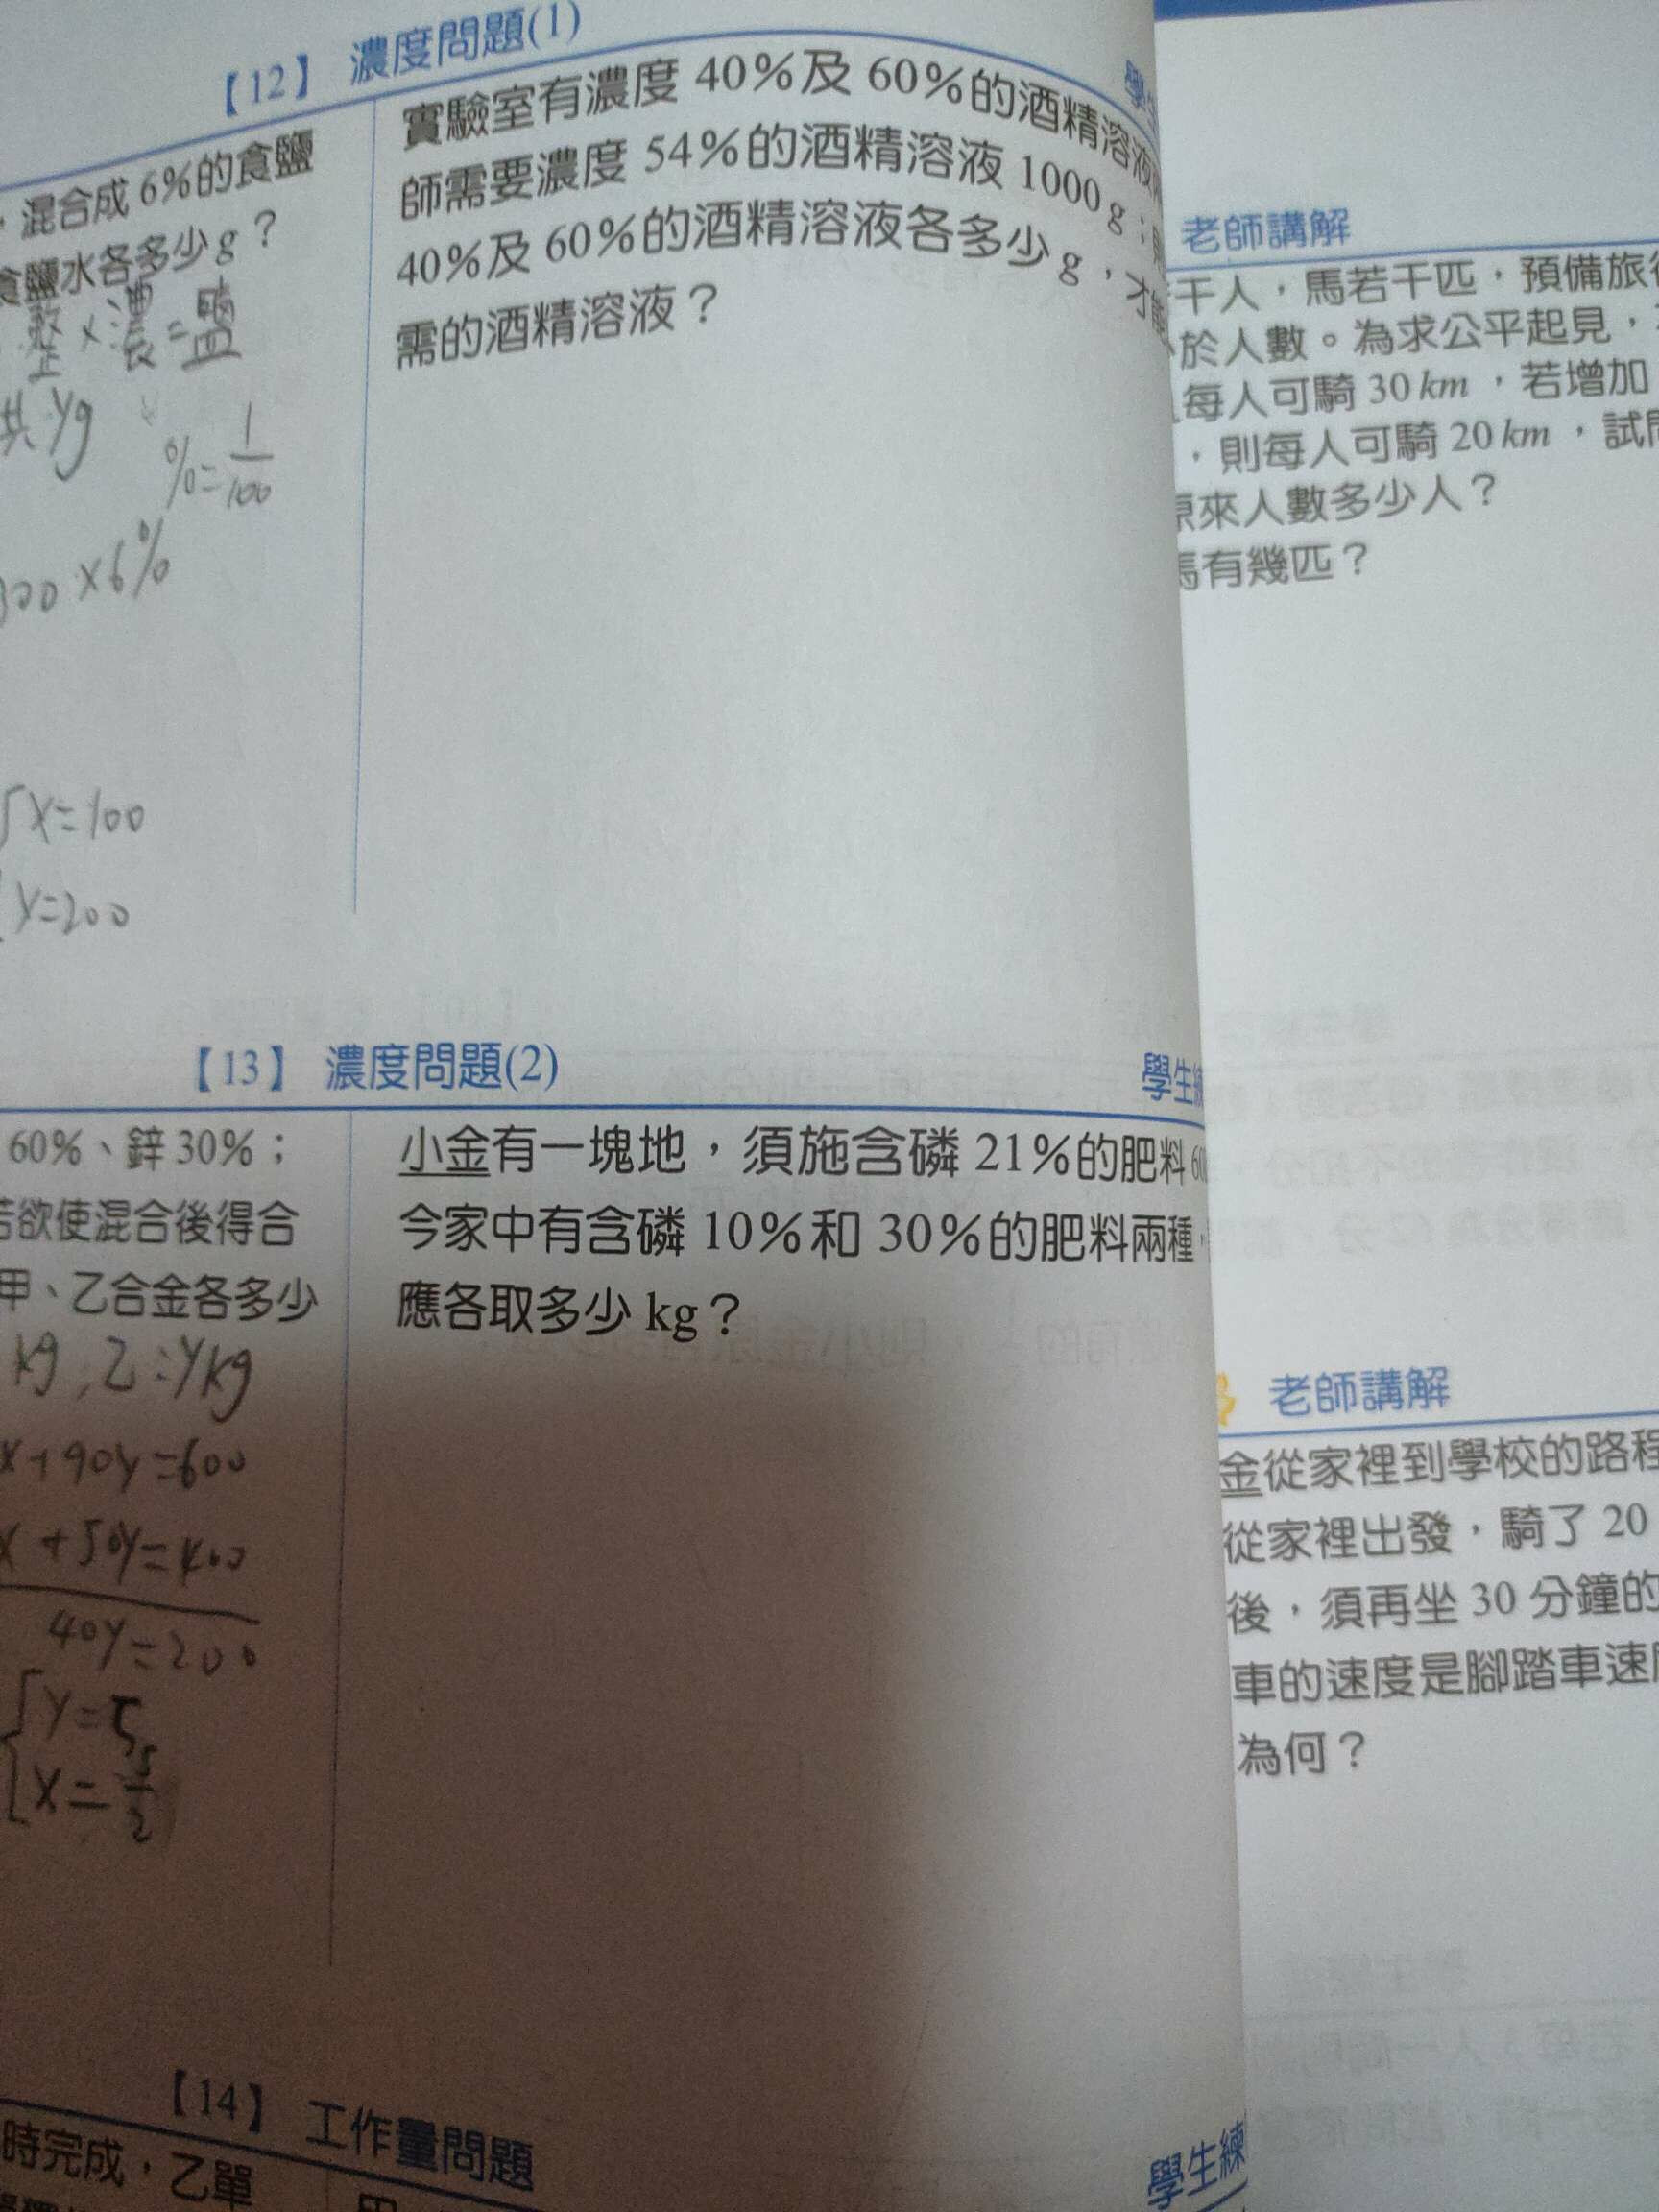 【12】 濃度問題(1)
，混合成6%的食鹽
食鹽水各多少g？
×濃=鹽
共yg
%=1/100
300×6%
x=100
y=200
實驗室有濃度40%及60%的酒精溶液
師需要濃度54%的酒精溶液1000g；則
40%及60%的酒精溶液各多少g，才
需的酒精溶液？
【13】 濃度問題(2)
學生練
60%、鋅30%；
若欲使混合後得合
甲、乙合金各多少
kg，乙:ykg
x+90y=600
x+50y=400
40y=200
y=5
x=5/2
小金有一塊地，須施含磷21%的肥料60
今家中有含磷10%和30%的肥料兩種，
應各取多少kg？
【14】 工作量問題
學生練
時完成，乙單
老師講解
干人，馬若干匹，預備旅
於人數。為求公平起見，
每人可騎30km，若增加
，則每人可騎20km，試
原來人數多少人？
馬有幾匹？
老師講解
金從家裡到學校的路程
從家裡出發，騎了20
後，須再坐30分鐘的
車的速度是腳踏車速
為何？